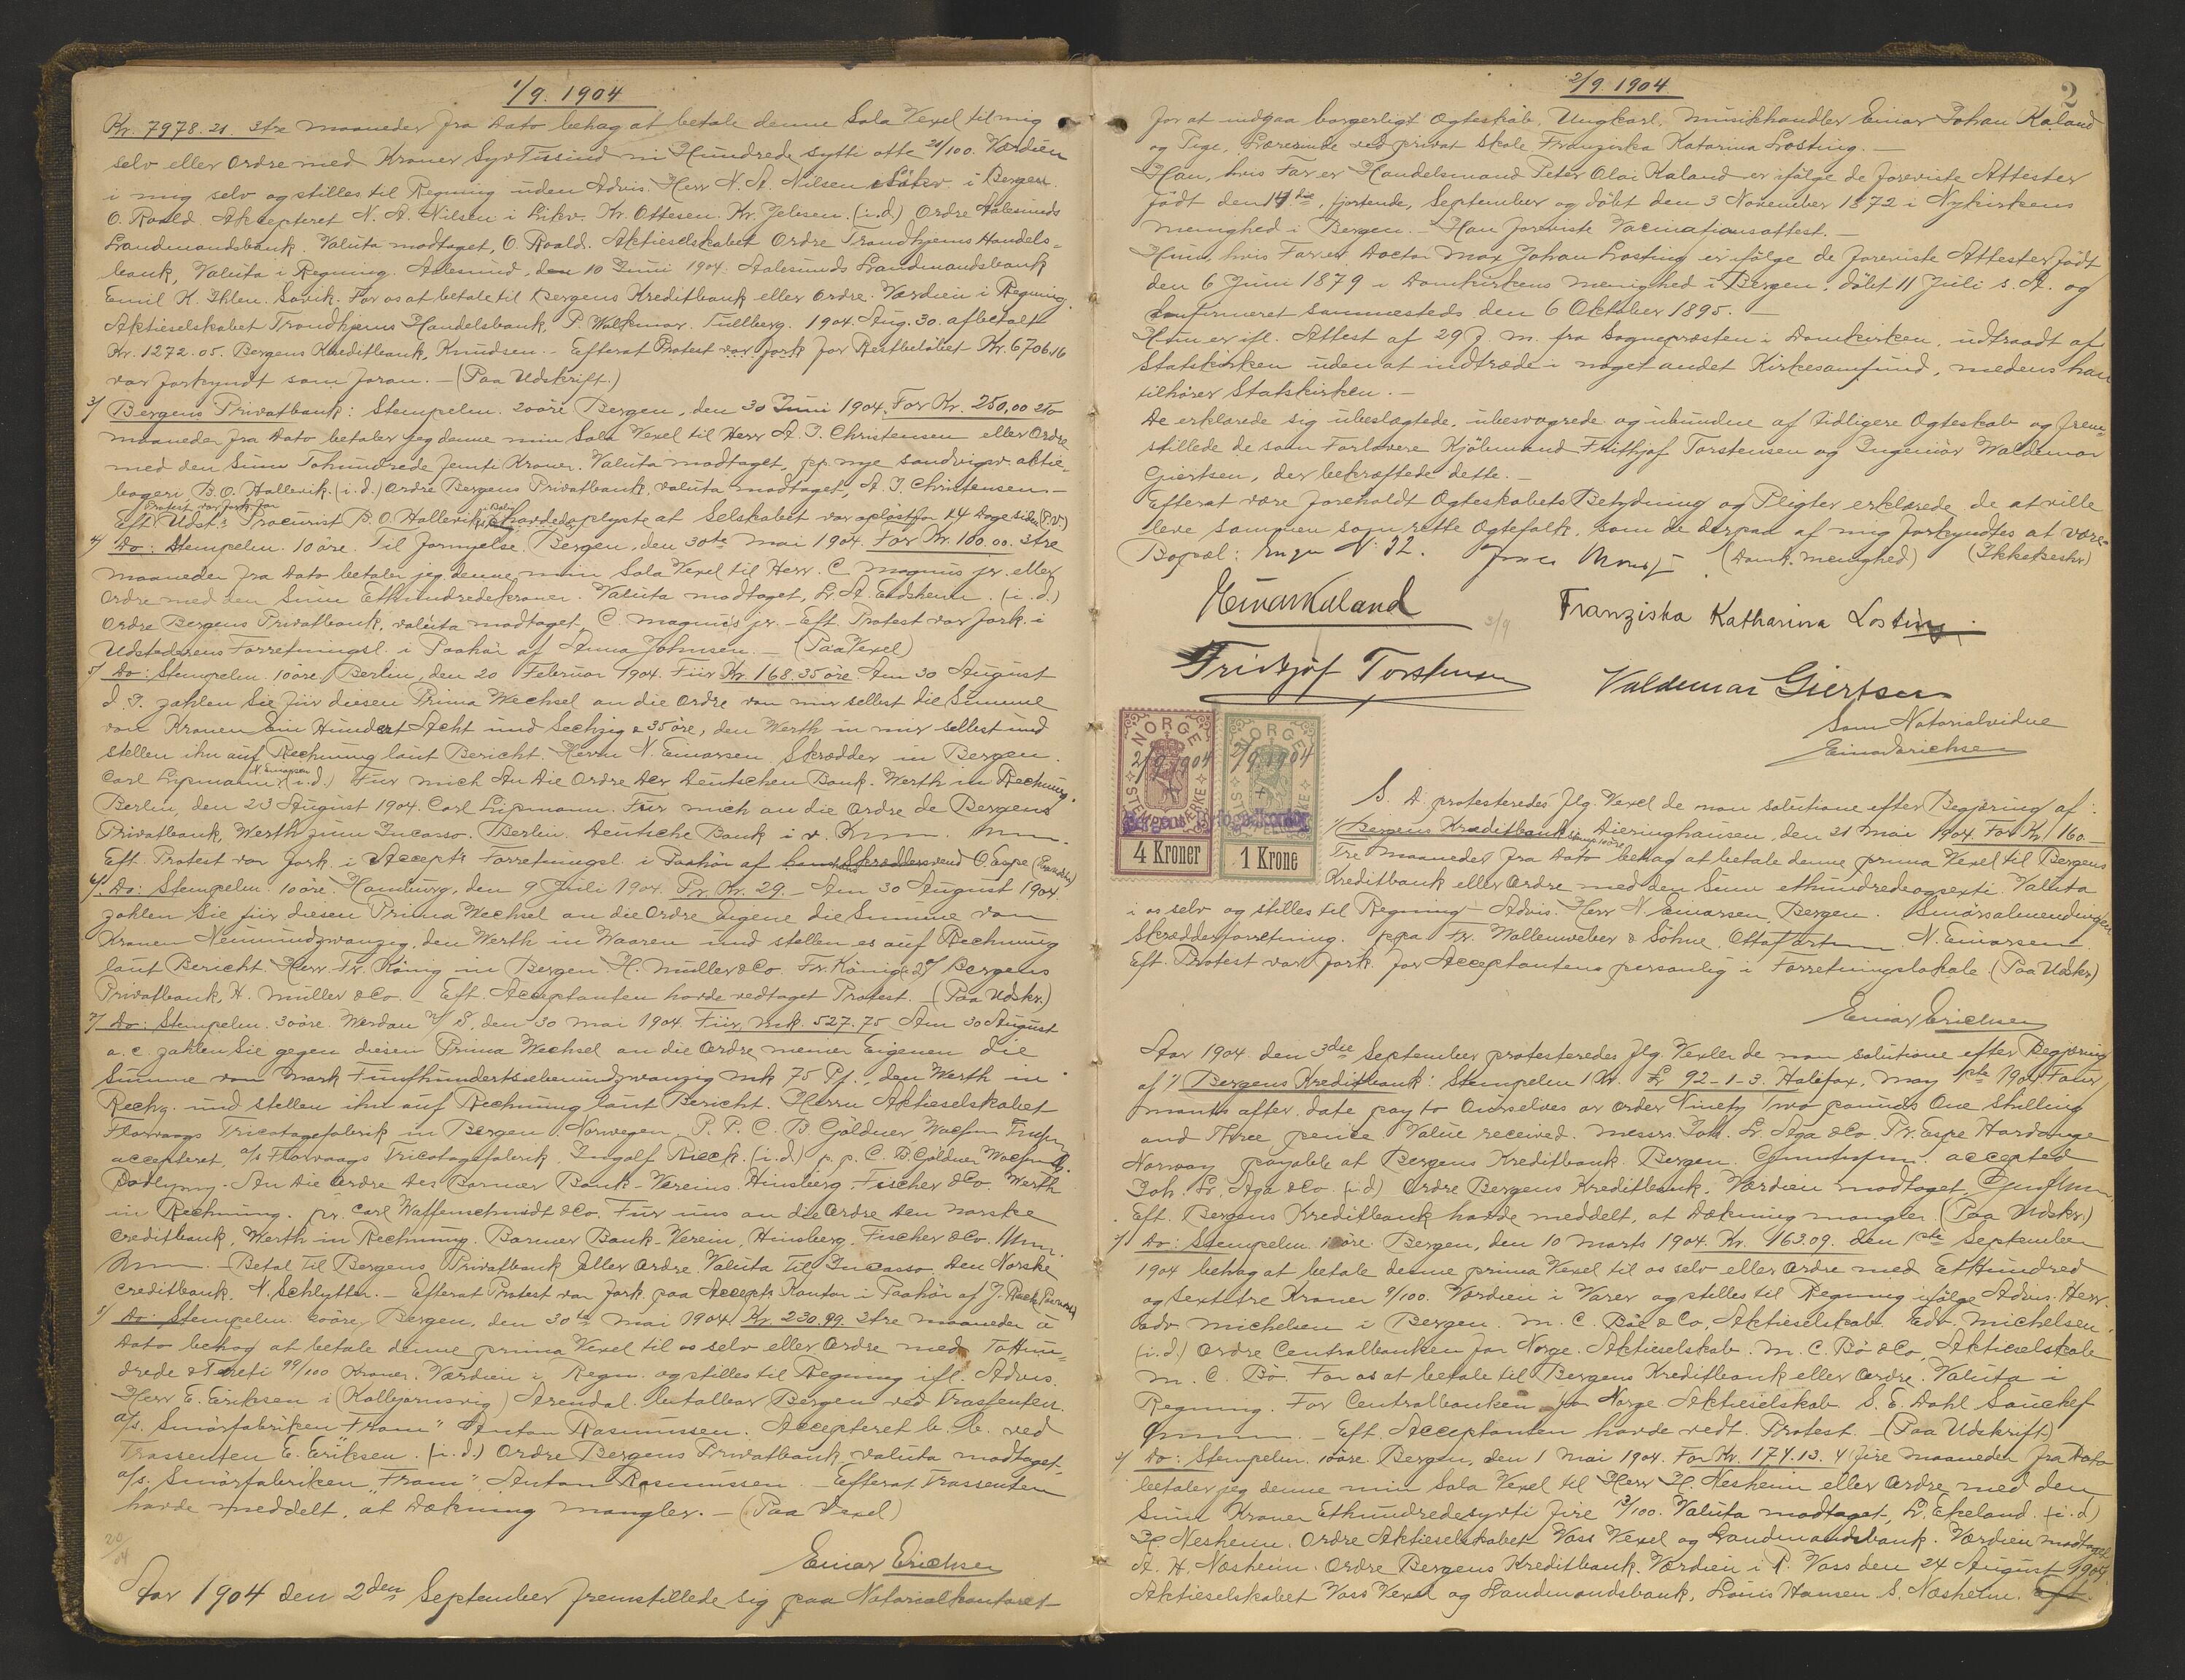 1/9. 1904
Kr. 7978.21. 3tre maaneder fra dato behag at betale denne Sola Vexel til mig
selv eller Ordre med Kroner Syv Tusind ni Hundrede sytti otte 21/100. Værdien
i mig selv og stilles til Regning uden Advis. Herr N. A. Nilsen i Bergen.
O. Roald. Akcepteret N. A. Nilsen i Likv. Kr. Ottesen. Kr. Jebsen. (i.d.) Ordre Aalesunds
Landmandsbank. Valuta modtaget, O. Roald. Aktieselskabet Ordre Trondhjems Handels-
bank, Valuta i Regning. Aalesund, den 10 Juni 1904. Aalesunds Landmandsbank
Emil K. Ihlen. Savik. For os at betale til Bergens Kreditbank eller Ordre. Værdien i Regning.
Aktieselskabet Trondhjems Handelsbank, P. Tullberg. 1904. Aug. 30. afbetalt
Kr. 1272.05. Bergens Kreditbank, Knudsen. - Efterat Protest var fork for Restbeløbet Kr. 6706.16
var forkyndt som foran. - (Paa Udskrift.)
3/ Bergens Privatbank: Stempelm. 20 øre. Bergen, den 30 Juni 1904. For Kr. 250,00 2To
maaneder fra Dato betaler jeg denne min Sola Vexel til Herr A. J. Christensen eller Ordre
med den Sum Tohundrede femti Kroner. Valuta modtaget, pp. nye sandvigsv. aktie-
bageri, B. O. Hallevik. (i.d.) Ordre Bergens Privatbank, valuta modtaget, A. J. Christensen -
Protest var fork for
Eft. Udst.s Procurist B. O. Hallevik oplyste at Selskabet var opløst for 14 Dage siden (P.V.)
4/ Do: Stempelm. 10 øre. Til fornyelse. Bergen, den 30te Mai 1904. For Kr. 100.00. 3tre
maaneder fra dato betaler jeg denne min Sola Vexel til Herr C. Magnus jr. eller
Ordre med den Sum Ethundredekroner. Valuta modtaget, L. A. Eidsheim. (i.d.)
Ordre Bergens Privatbank, valuta modtaget, C. Magnus jr. - Eft. Protest var fork. i
Udstederens Forretningsl. i Paahør af Anna Johnsen. - (Paa Vexel)
5/ Do: Stempelm. 10 øre. Berlin, den 20 Februar 1904. Für Kr. 168.35 öre Am 30 August
d. J. zahlen Sie für diesen Prima Wechsel an die Ordre von mir selbst die Summe
von Kronen Ein Hundert Acht und Sechzig & 35 öre, den Werth in mir selbst und
stellen ihn auf Rechnung laut Bericht. Herrn N. Einarsen Skrædder in Bergen.
N. Einarsen
Carl Lipmann. (i.d.) Für mich An die Ordre der Deutschen Bank. Werth in Rechnung.
Berlin, den 23 August 1904. Carl Lipmann. Für mich an die Ordre de Bergens
Privatbank, Werth zum Incasso. Berlin. Deutsche Bank i. v.
Eft. Protest var fork. i Accept.s Forretningsl. i Paahør af O. Espe
6/ Do: Stempelm. 10 øre. Hamburg, den 9 Juli 1904. Pr. Kr. 29. - Am 30 August 1904
zahlen Sie für diesen Prima Wechsel an die Ordre Eigene die Summe von
Kronen Neunundzwanzig, den Werth in Waaren und stellen es auf Rechnung
laut Bericht. Herr Fr. König in Bergen. H. Müller & Co. Fr. König. Bergens
Privatbank, H. Müller & Co. - Eft. Acceptanten havde vedtaget Protest. - (Paa Udskr.)
7/ Do: Stempelm. 30 øre. Werdau i/S, den 30 Mai 1904. Für Mk. 527.75 Am 30 August
a. c. zahlen Sie gegen diesen Prima Wechsel an die Ordre meiner Eigenen die
Summe von Mark Fünfhundertsiebenundzwanzig Mk 75 Pf., den Werth in
Rechg. und stellen ihn auf Rechnung laut Bericht. Herrn Aktieselskabet
Florvaags Tricotagefabrik in Bergen, Norwegen. P. P. C. B. Göldner
accepteret, a/s Florvaags Tricotagefabrik. Ingolf Rieck. (i.d.) p. p. C. B. Göldner
An die Ordre des Barmer Bank-Vereins Hinsberg, Fischer & Co. Werth
in Rechnung. pr. Carl Waffenschmidt & Co. Für uns an die Ordre den norske
creditbank, Werth in Rechnung. Barmer Bank-Verein, Hinsberg, Fischer & Co.
Betal til Bergens Privatbank eller Ordre. Valuta til Incasso. Den Norske
creditbank. N. Schlytter. - Efterat Protest var fork. paa Accepts Kontor i Paahør af J. Rieck
8/ Do: Stempelm. 20 øre. Bergen, den 30te Mai 1904. Kr. 230.99. 3tre maaneder à
Dato behag at betale denne prima Vexel til os selv eller Ordre med ToHun-
drede & Treti 99/100 Kroner. Værdien i Regn. og stilles til Regning ifl. Advis.
Herr E. Eriksen i (Kolbjørnsvig) Arendal. betalbar Bergen ved Trassenten.
a/s. Smørfabriken "Fram" Anton Rasmussen. Accepteret b. b. ved
Trassenten E. Eriksen. (i.d.) Ordre Bergens Privatbank valuta modtaget
a/s. Smørfabriken "Fram", Anton Rasmussen. - Efterat Trassenten
havde meddelt, at Dækning mangler. - (Paa Vexel)
Einar Erichsen
Aar 1904 den 2den September fremstillede sig paa Notarialkontoret
2/9. 1904
2
for at indgaa borgerligt Ægteskab, Ungkarl, musikhandler Einar Johan Kaland
og Pige, Lærerinde ved privat skole Franziska Katarina Losting. -
Han, hvis Far er Handelsmand Peter Olai Kaland er ifølge de foreviste Attester
født den 14de, fjortende, September og døbt den 3 November 1872 i Nykirkens
menighed i Bergen. - Han foreviste Vacinationsattest. -
Hun, hvis Far er Doctor Max Johan Losting er ifølge de foreviste Attester født
den 6 Juni 1879 i Domkirkens menighed i Bergen, døbt 11 Juli s. A. og
konfirmeret sammesteds den 6 Oktober 1895. -
Hun er ifl. Attest af 29 f. m. fra Sognepræsten i Domkirken, udtraadt af
Statskirken uden at indtræde i noget andet Kirkesamfund, medens han
tilhører Statskirken. -
De erklærede sig ubeslægtede, ubesvogrede og ubundne af tidligere Ægteskab og frem-
stillede de som Forlovere Kjøbmand Frithjof Torstensen og Ingeniør Waldemar
Gjertsen, der bekræftede dette. -
Efterat være foreholdt Ægteskabets Betydning og Pligter erklærede de at ville
leve sammen som rette Ægtefolk, som de derpaa af mig forkyndtes at være
Bopæl: No: 22. (Domk. menighed) (Ikke beskr.)
H Einar Kaland
2/9
Franziska Katharina Losting
Fridtjof Torstensen
Valdemar Giertsen
Som Notarialvidne
Einar Erichsen
NORGE
STEMPELMÆRKE
2/9 1904
4 Kroner
NORGE
STEMPELMÆRKE
2/9 1904
1 Krone
S. D. protesteredes flg. Vexel de non solutione efter Begjæring af:
1/ Bergens Kreditbank: Dieringhausen, den 21 Mai 1904. For Kr. 160 -
Tre maaneder fra dato behag at betale denne prima Vexel til Bergens
Kreditbank eller Ordre med den Sum ethundredeogsexti. Valuta
i os selv og stilles til Regning Advis. Herr N. Einarsen, Bergen. Smørsalmendingen
Skrædderforretning. ppa Fr. Wollenweber & Söhne. N. Einarsen
Eft. Protest var fork. for Acceptanten personlig i Forretningslokale (Paa Udskr)
Einar Erichsen
Aar 1904 den 3die September protesteredes flg. Vexler de non solutione efter Begjæring
af 1/ Bergens Kreditbank: Stempelm 1 Kr. £ 92-1-3. Halifax, May 1ste 1904 Four
months after date pay to Ourselves or order Ninety Two pounds One Shilling
and Three pence. Value received. Messrs. Joh. Lr. Aga & Co. Pr. Espe Hardanger
Norway payable at Bergens Kreditbank Bergen. accepted
Joh. Lr. Aga & Co. (i.d) Ordre Bergens Kreditbank. Værdien modtaget.
Eft. Bergens Kreditbank havde meddelt, at Dækning mangler. (Paa Udskr.)
2/ Do: Stempelm. 10 øre. Bergen, den 10 Marts 1904. Kr. 163.09. den 1ste September
1904 behag at betale denne prima Vexel til os selv eller Ordre med EtHundred
og Sextitre Kroner 9/100. Værdien i Varer og stilles til Regning ifølge Advis. Herr
Edv. Michelsen i Bergen. M. C. Bøe & Co, Aktieselskab. Edv. Michelsen.
(i.d.) Ordre Centralbanken for Norge. Aktieselskab. M. C. Bö & Co, Aktieselskab
M. C. Bö. For os at betale til Bergens Kreditbank eller Ordre. Valuta i
Regning. For Centralbanken for Norge Aktieselskab S. E. Dahl Souchef
- Eft. Acceptanten havde vedt. Protest. - (Paa Udskrift.)
3/ Do: Stempelm. 10 øre. Bergen, den 1 Mai 1904. For Kr. 174.13. 4 fire maaneder fra Dato
betaler jeg denne min Sola Vexel til Herr H. Nesheim eller Ordre med den
Sum Kroner Ethundredesyvti fire 13/100. Valuta modtaget, L. Ekeland. (i.d)
H. Nesheim. Ordre Aktieselskabet Voss Vexel og Landmandsbank. Værdien modtaget
A. H. Næsheim. Ordre Bergens Kreditbank. Værdien i R. Voss den 24 August 1904.
Aktieselskabet Voss Vexel og Landmandsbank, Louis Hansen. S. Næsheim.